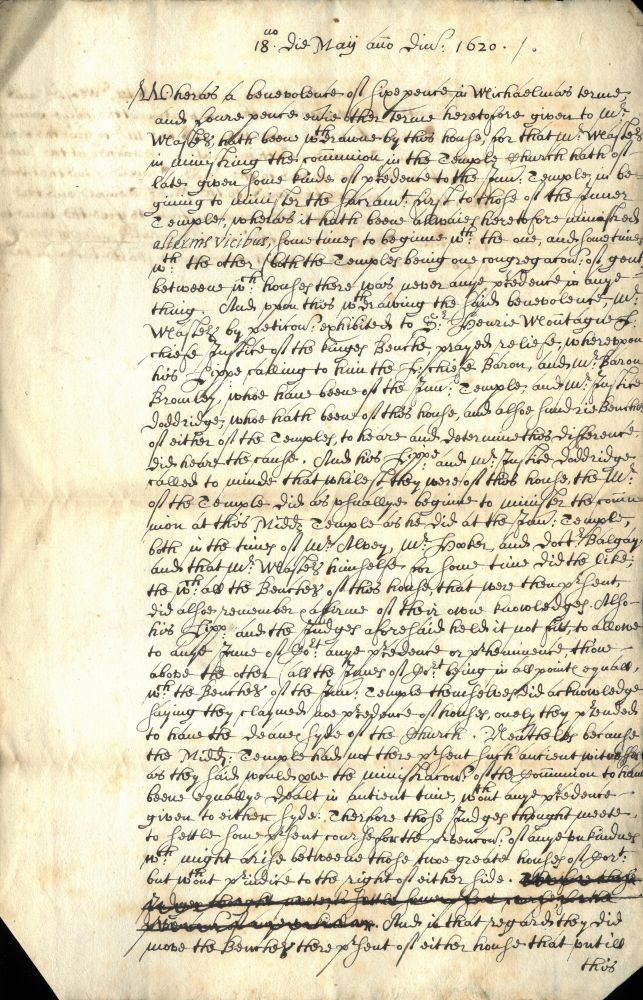 18no. die Maij año Dni: 1620. /.
Wheras a benevolence of sixepence in Michaelmas terme
and fowre pence eu'ie other terme heretofore given to Mr.
Masters hath beene wthdrawne by this house, for that Mr. Masters
in ministring the com̄union in the Temple Church hath of
late given some kinde of p'cedence to the Inn: Temple, in be-
gining to minister the Sacramt: first to those of the Inner
Temple, wheras it hath beene allwaies heretofore ministred
alternis vicibus, sometimes to beginne wth: the one, and sometimes
wth: the other (both the Temples being one congregacōn: of gent
betweene wch: houses there was never anye p'cedence in anye
thing. And vpon this wthdrawing the said benevolence, Mr.
Masters by peticōn: exhibited to Sr: Henrie Mountague L:
chiefe Justice of the kinges Benche prayed reliefe, wherevpon
his Lippe calling to him the L: chiefe Baron, and Mr. Baron
Bromley, whoe haue beene of the Inn: Temple, and Mr. Justice
Doddridge, whoe hath been of this house, and alsoe sundrie Benchers
of either of the Temples, to heare and determine this difference
did heare the cause. And his Lippe: and Mr. Justice Doddridge
called to minde that whilest they were of this house, the Mr.
of the Temple did as vsuallye beginne to minister the com̄u-
nion at this Midd: Temple as he did at the Inn: Temple,
both in the times of Mr. Alvey, Mr. Hooker, and Doctr: Balgay,
and that Mr. Masters himselfe for some time did the like;
the wch: all the Benchers of this house, that were then p'sent,
did alsoe remember & affirme of their owne knowledges. Also
his Lipp: and the Judges aforesaid held it not fitt, to allowe
to anye Inne of Cort: anye p'cedence or p'heminence thone
aboue the other (all the Innes of Cort: being in all points equall,
wch: the Benchers of the Inn: Temple themselves did acknowledge
saying they claymed noe p'cedence of houses, onely they p'tended
to haue the deanes syde of the Church. Neuthelesse because
the Midd: Temple had not there p'sent such ancient witnesses
as they said would p've the ministracōn: of the Com̄union to haue
beene equallye dealt in antient time, wthout anye p'cedence
given to either syde: Therfore those Judges thought meete
to settle some p'sent course for the p'vencōn: of anye vnkindnes
wch: might arise betweene those twoe greate houses of Cort:
but wthout p'iudice to the right of either side.
And in that regard they did
move the Benchers there p'sent of either house that vntill
this